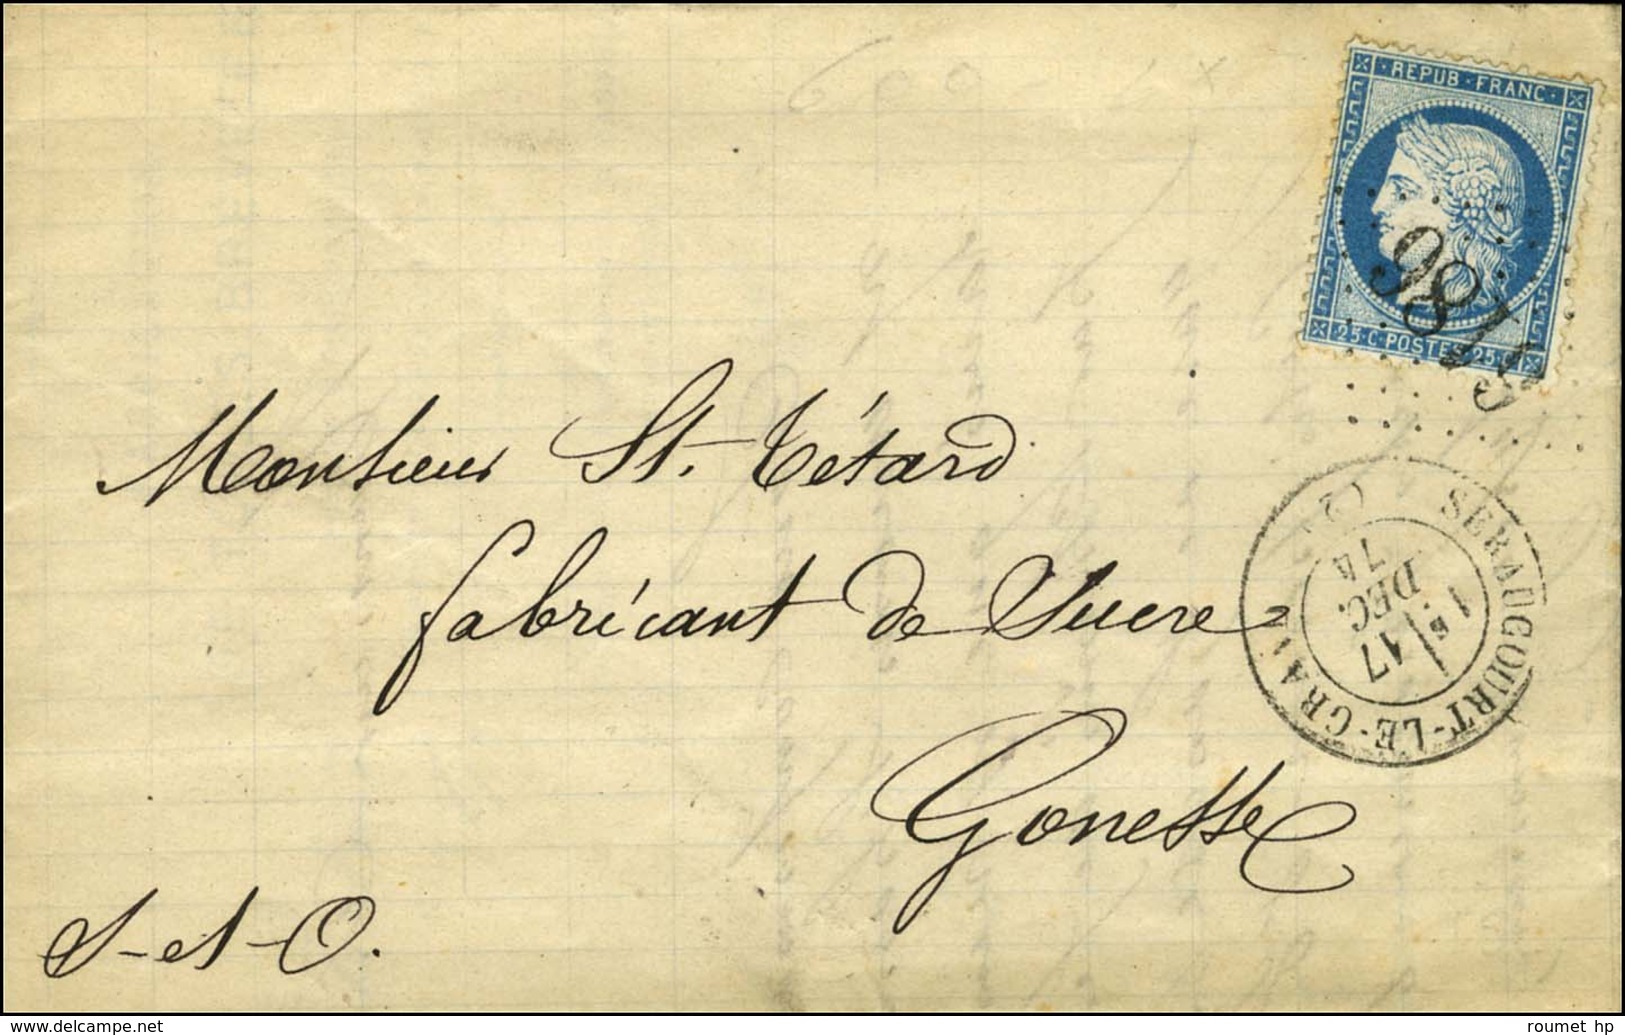 REPUB · FRANC ·
25 · C · POSTES · 25 · C
Monsieur St. Tétard
fabricant de Sucre
Gonesse
S-et-O.
SERAUCOURT-LE-GRAND
(2)
17
DEC.
74
roumet_hp